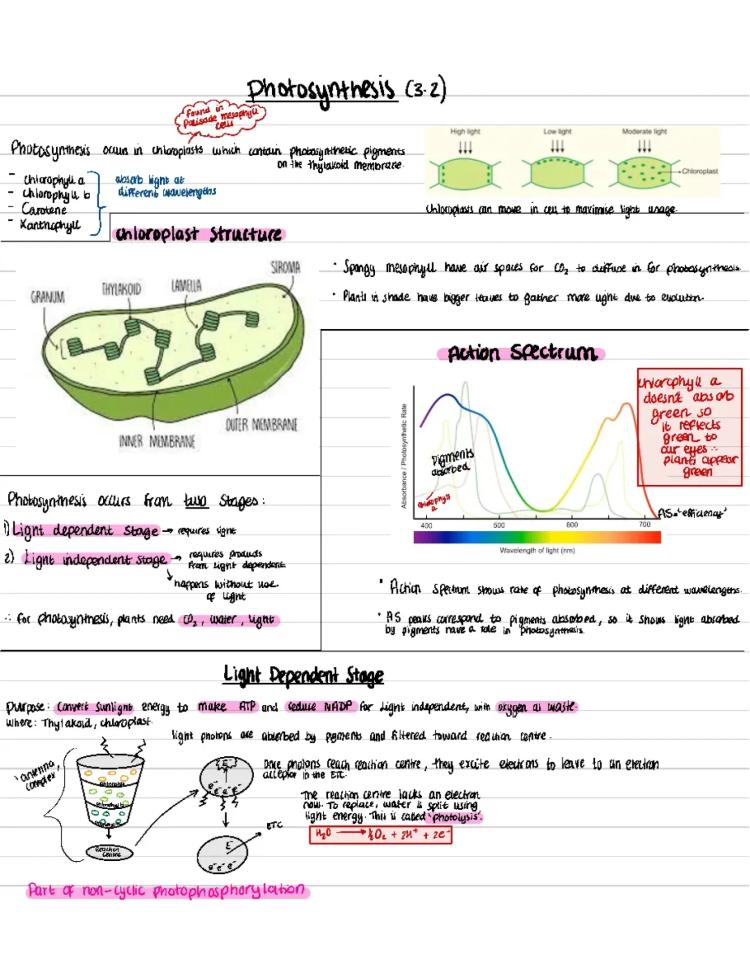 Photosynthesis (3.2)
Found in
Palisade mesophyll
cells
Photosynthesis occurs in chloroplasts which contain photosynthetic pigments
on the thylakoid membrane.
- Chlorophyll a
- Chlorophyll b
- Carotene
- Xanthophyll
absorb light at
different wavelengths
High light
Low light
Moderate light
Chloroplast
Chloroplasts can move in cell to maximise light usage.
Chloroplast Structure
GRANUM
THYLAKOID
LAMELLA
STROMA
INNER MEMBRANE
OUTER MEMBRANE
• Spongy mesophyll have air spaces for CO₂ to diffuse in for photosynthesis
• Plants in shade have bigger leaves to gather more light due to evolution.
Action Spectrum
Absorbance / Photosynthetic Rate
Pigments
absorbed
Chlorophyll
a
400 500 600 700
Wavelength of light (nm)
AS="efficiency"
Chlorophyll a
doesn't absorb
green so
it reflects
green to
our eyes ∴
plants appear
green
• Action spectrum shows rate of photosynthesis at different wavelengths.
• AS peaks correspond to pigments absorbed, so it shows light absorbed
by pigments have a role in photosynthesis.
Photosynthesis occurs from two stages:
1) Light dependent stage → requires light
2) Light independent stage → requires products
from light dependent
happens without use
of light
∴ for photosynthesis, plants need CO₂, water, light
Light Dependent Stage
Purpose: Convert sunlight energy to make ATP and reduce NADP for light independent, with oxygen as waste.
Where: Thylakoid, chloroplast
light photons are absorbed by pigments and filtered toward reaction centre.
'antenna
complex'
Reaction
Centre
E⁻
e⁻ e⁻ e⁻
E⁻
e⁻ e⁻ e⁻
ETC
Once photons reach reaction centre, they excite electrons to leave to an electron
acceptor in the ETC.
The reaction centre lacks an electron
now. To replace, water is split using
light energy. This is called 'photolysis'.
H₂O → ½O₂ + 2H⁺ + 2e⁻
Part of non-cyclic photophosphorylation